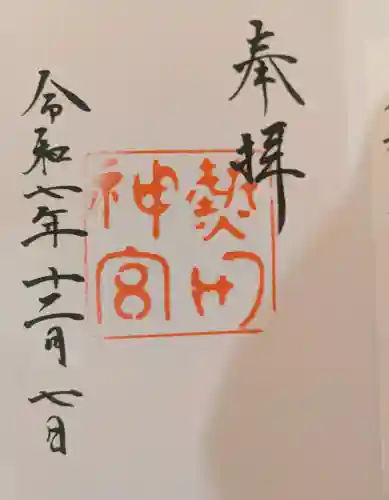 奉拝
熱田
神宮
令和七年十二月七日